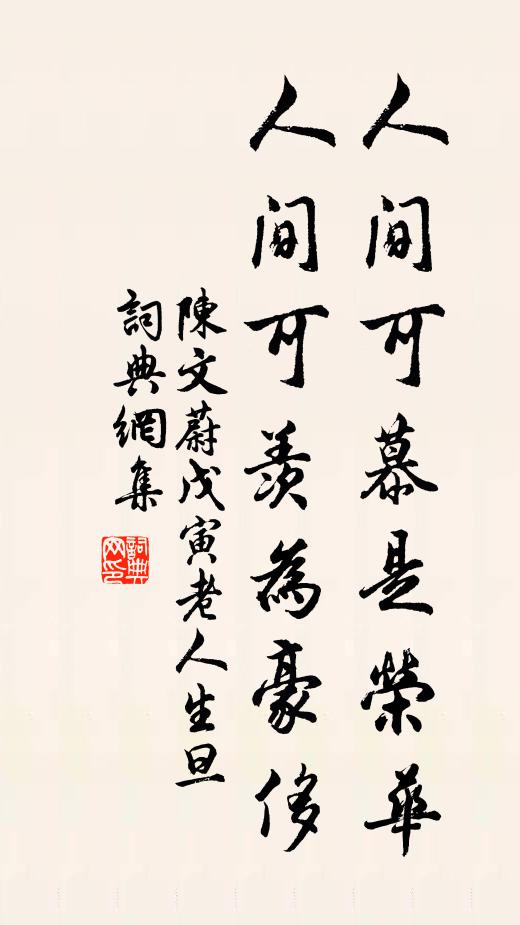 人間可慕是榮華
人間可羨為豪侈
陳文蔚戊寅老人生旦
詞典網集
詞典網印